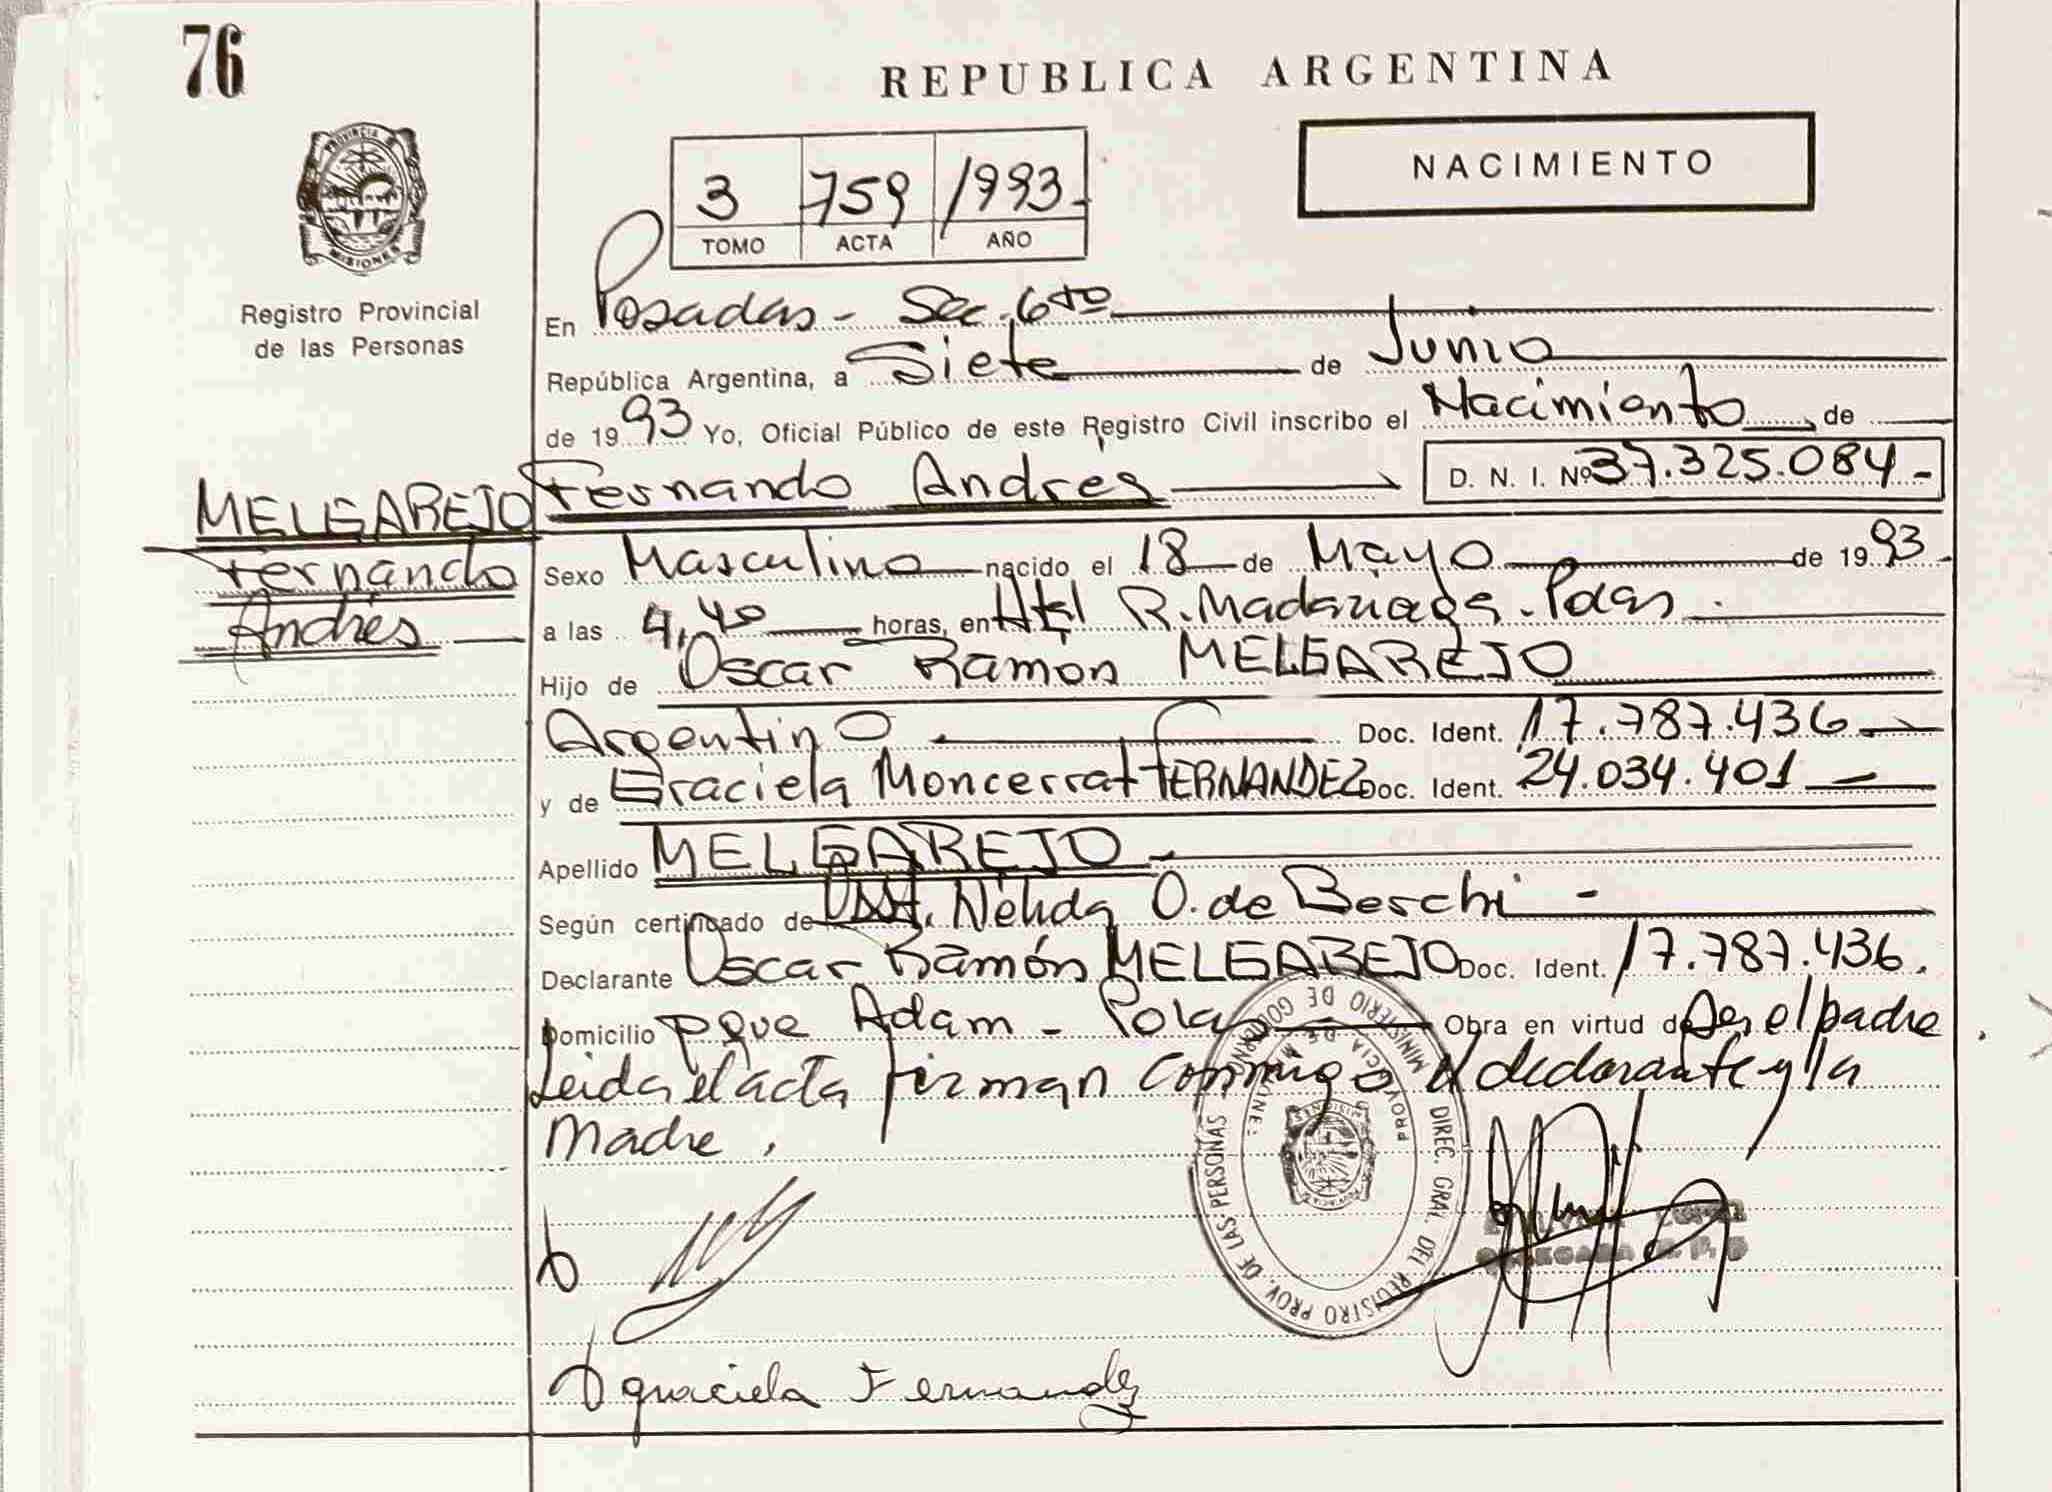 76
REPUBLICA ARGENTINA
NACIMIENTO
3 759 1993.-
TOMO ACTA AÑO
PROVINCIA
MISIONES
Registro Provincial
de las Personas
En Posadas - Sec. 6ta
República Argentina, a Siete de Junio
de 1993 Yo, Oficial Público de este Registro Civil inscribo el Nacimiento de
Fernando Andrés D. N. I. Nº 37.325.084-
MELGAREJO
Fernando
Andrés
Sexo Masculino nacido el 18 de Mayo de 1993.
a las 4,40 horas, en Htal R. Madariaga. Pdas.
Hijo de Oscar Ramón MELGAREJO
Argentino Doc. Ident. 17.787.436
y de Graciela Moncerrat FERNANDEZ Doc. Ident. 24.034.401
Apellido MELGAREJO
Según certificado de Obst. Nélida O. de Berchi -
Declarante Oscar Ramón MELGAREJO Doc. Ident. 17.787.436.
Domicilio pque Adam - Pdas Obra en virtud de Ser el padre
Leida el acta firman conmigo el declarante y la
Madre.
MINISTERIO DE GOBIERNO
DIREC. GRAL. DEL REGISTRO PROV. DE LAS PERSONAS
PROVINCIA DE MISIONES
graciela Fernandez